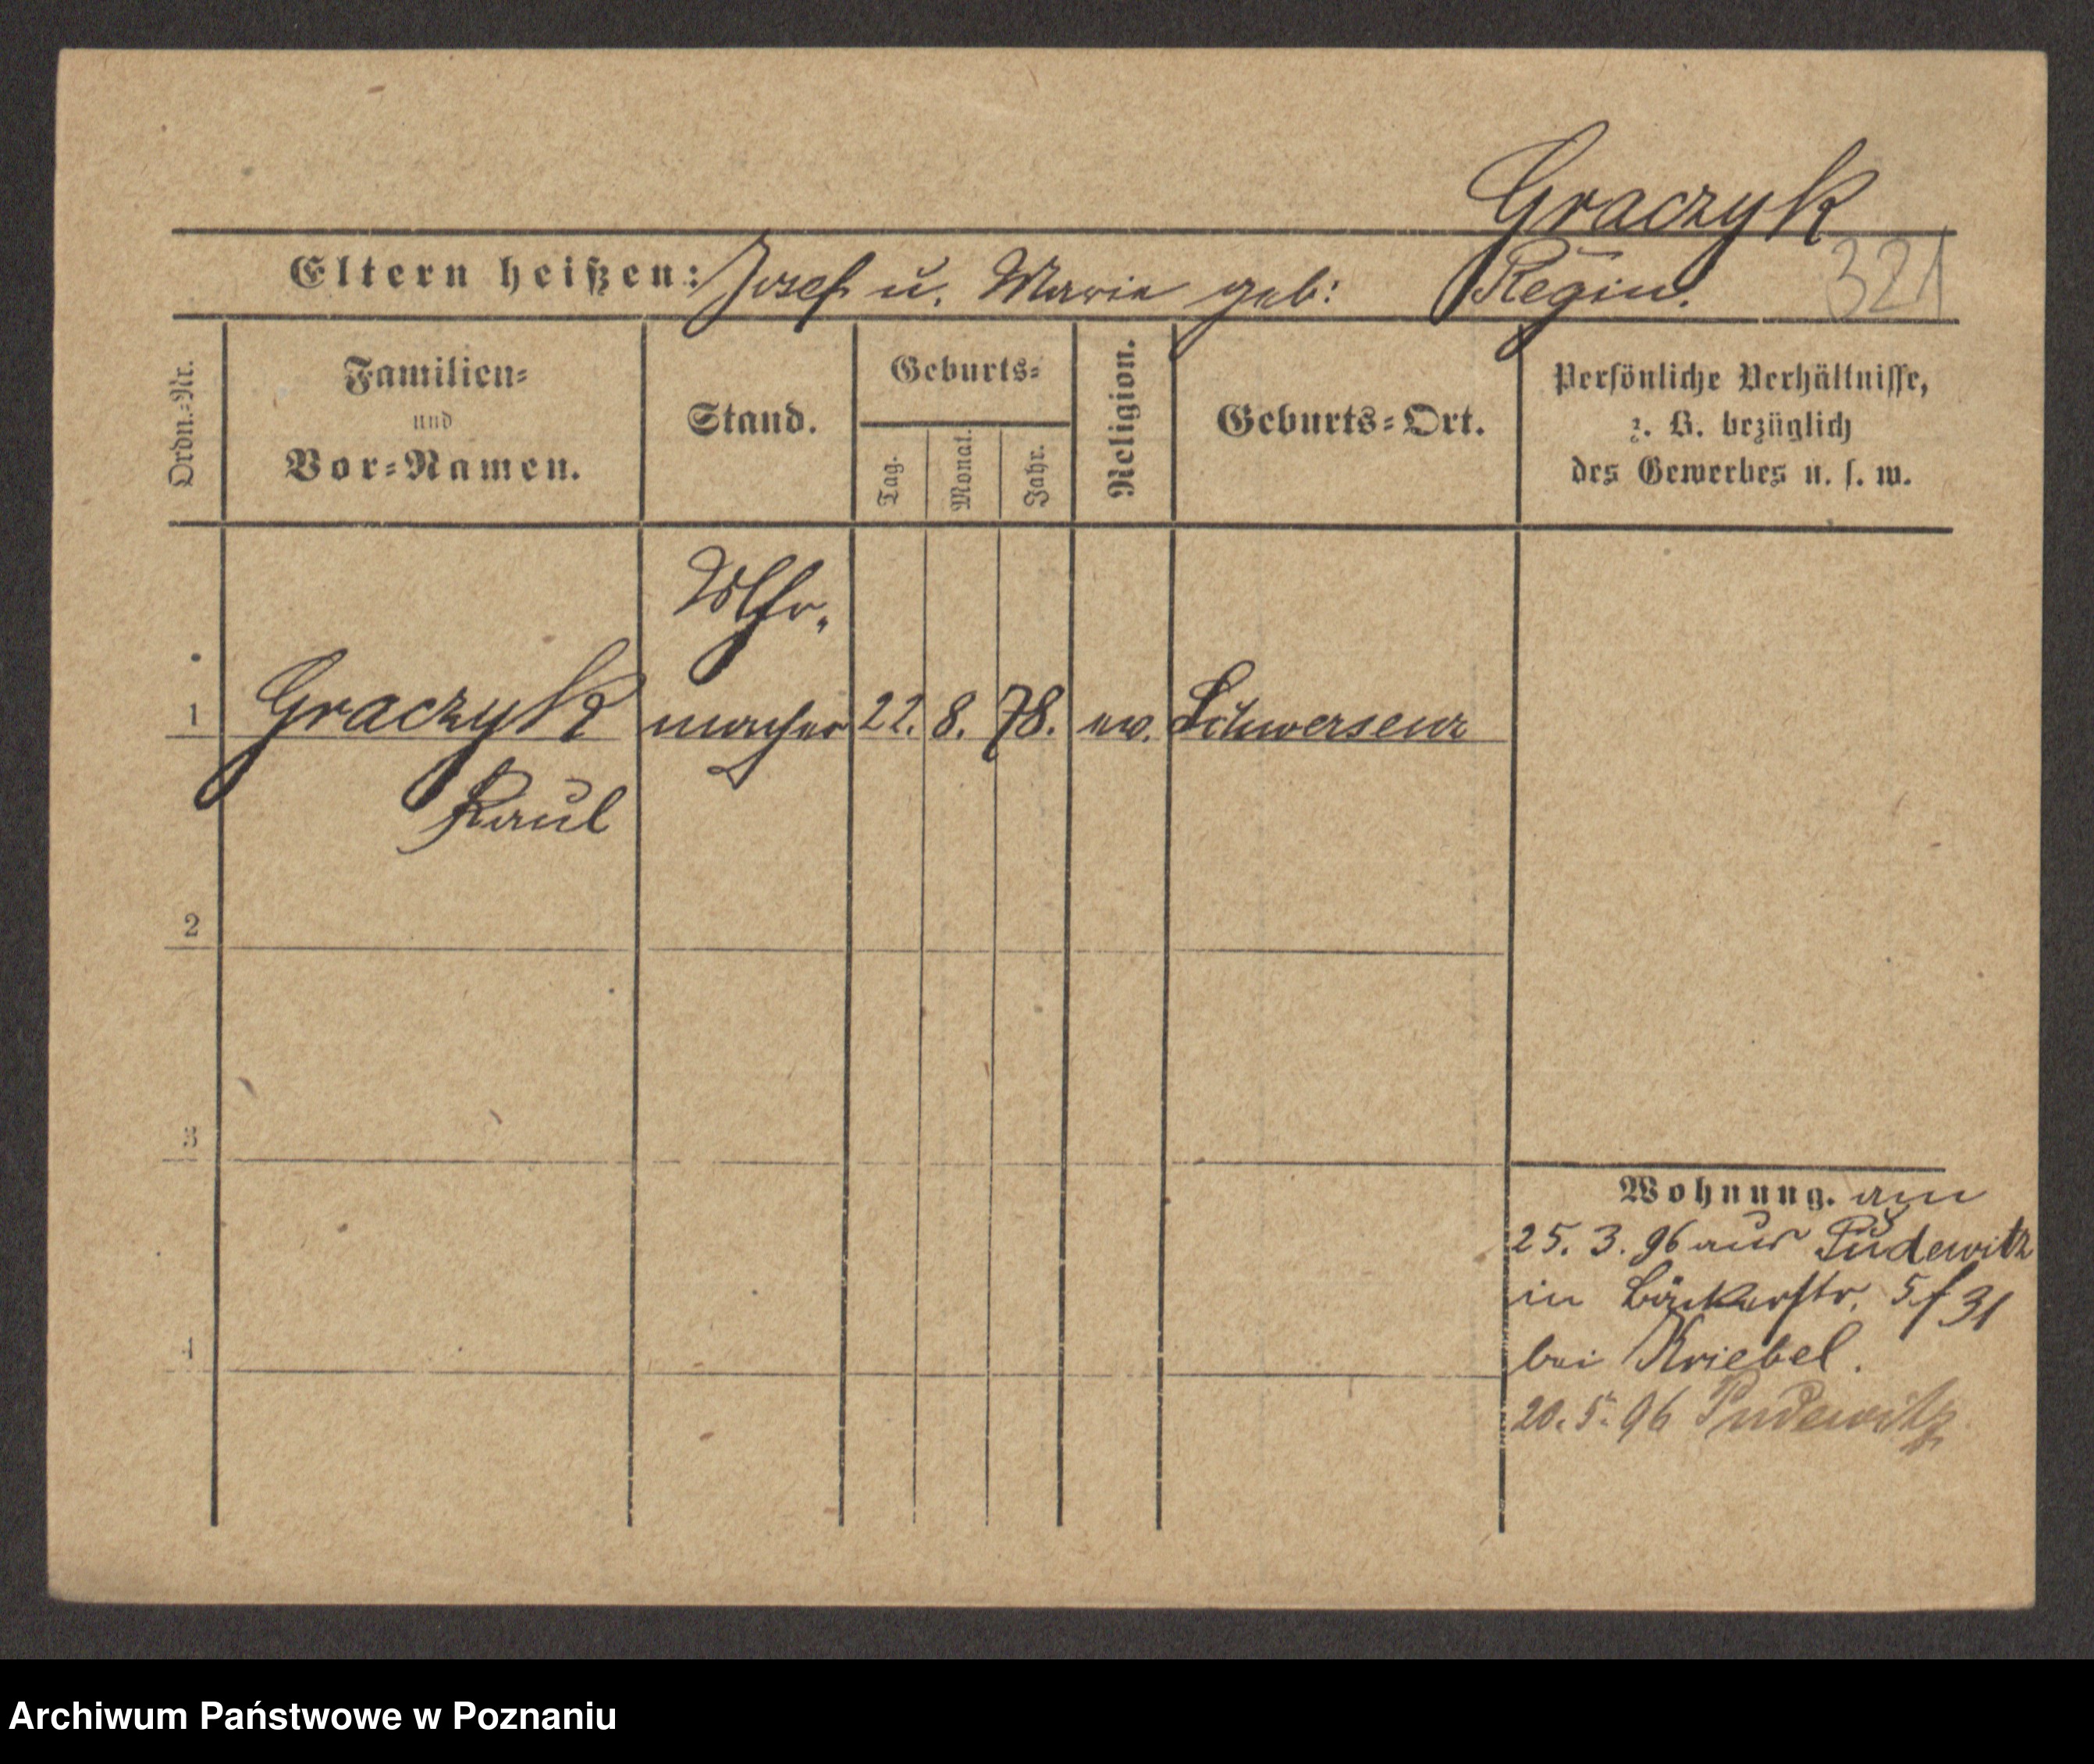 Graczyk
Eltern heißen: Josef u. Marie geb: Regin.
321
Ordn.=Nr.
Familien=
und
Vor=Namen.
Stand.
Geburts=
Tag.
Monat.
Jahr.
Religion.
Geburts=Ort.
Persönliche Verhältnisse,
z. B. bezüglich
des Gewerbes u. s. w.
Uhr,
1 Graczyk macher 22. 8. 78. ev. Schwersenz
Paul
2
3
4
Wohnung. am
25. 3. 96 aus Pudewitz
in Bäckerstr. 5/31
bei Kriebel.
20. 5. 96 Pudewitz
Archiwum Państwowe w Poznaniu